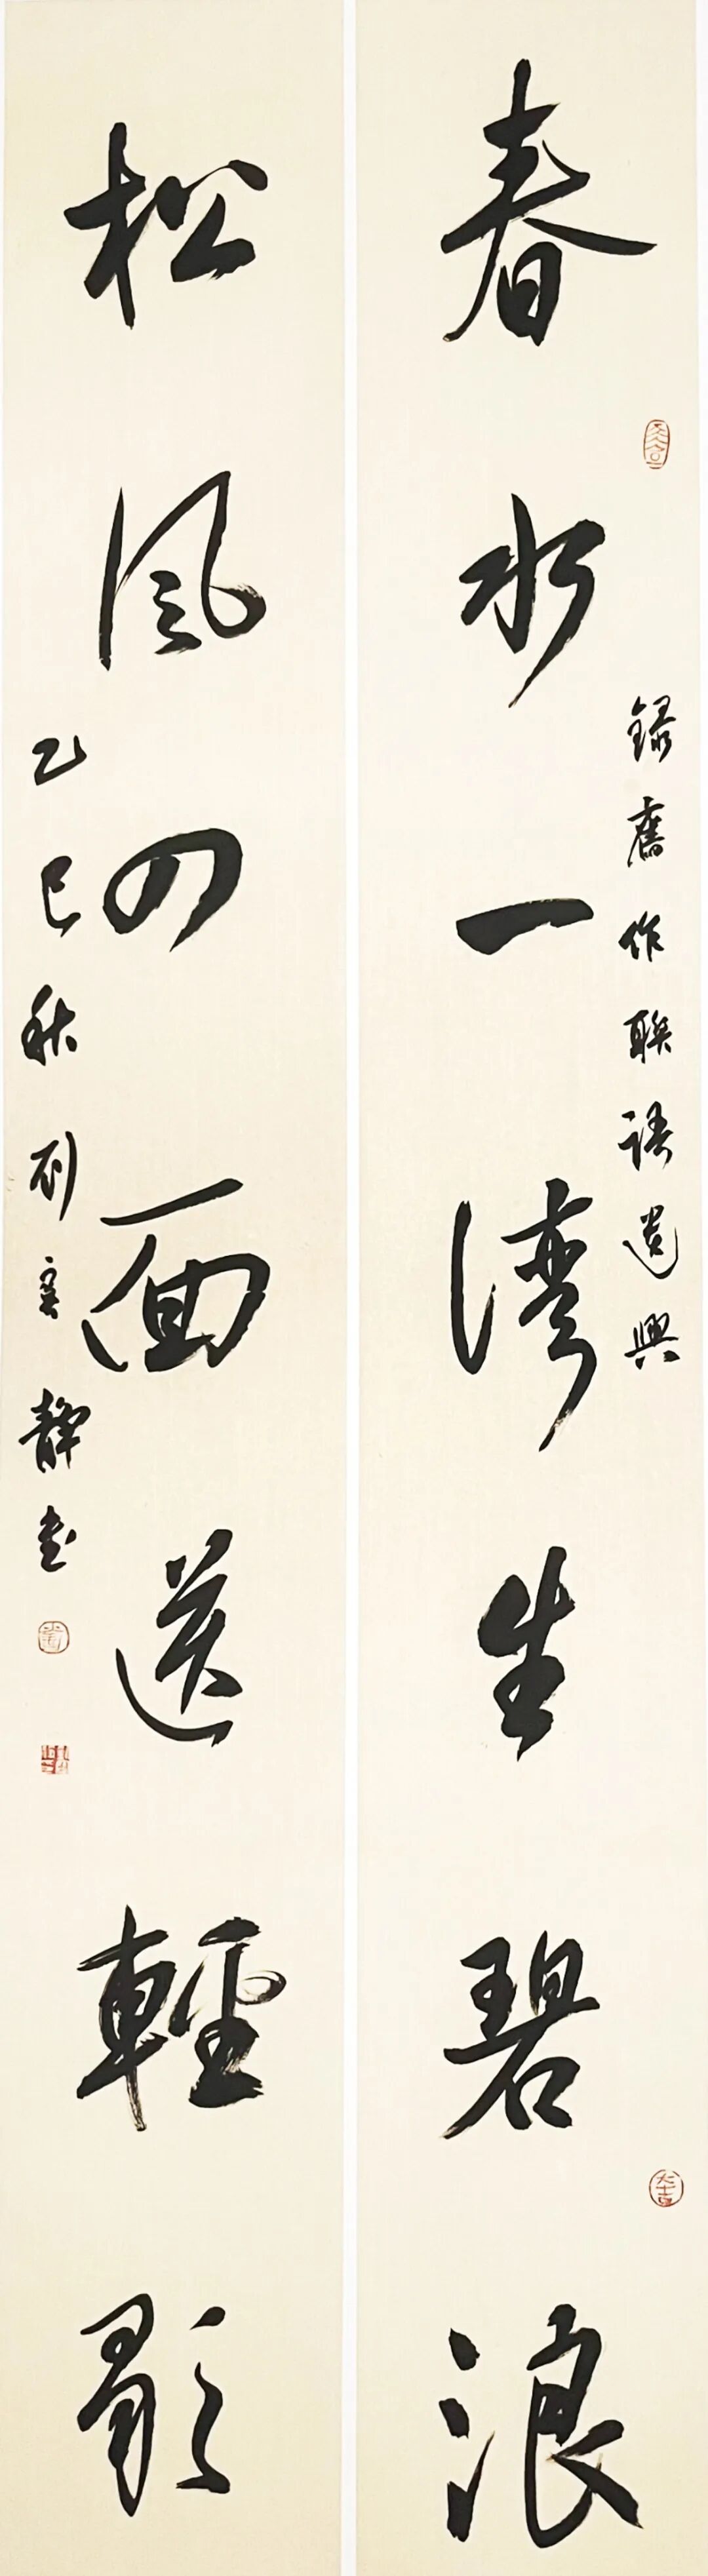 春水一湾生碧浪
録舊作聯語遣興
松風四面送輕歌
乙巳秋 靜書
大吉